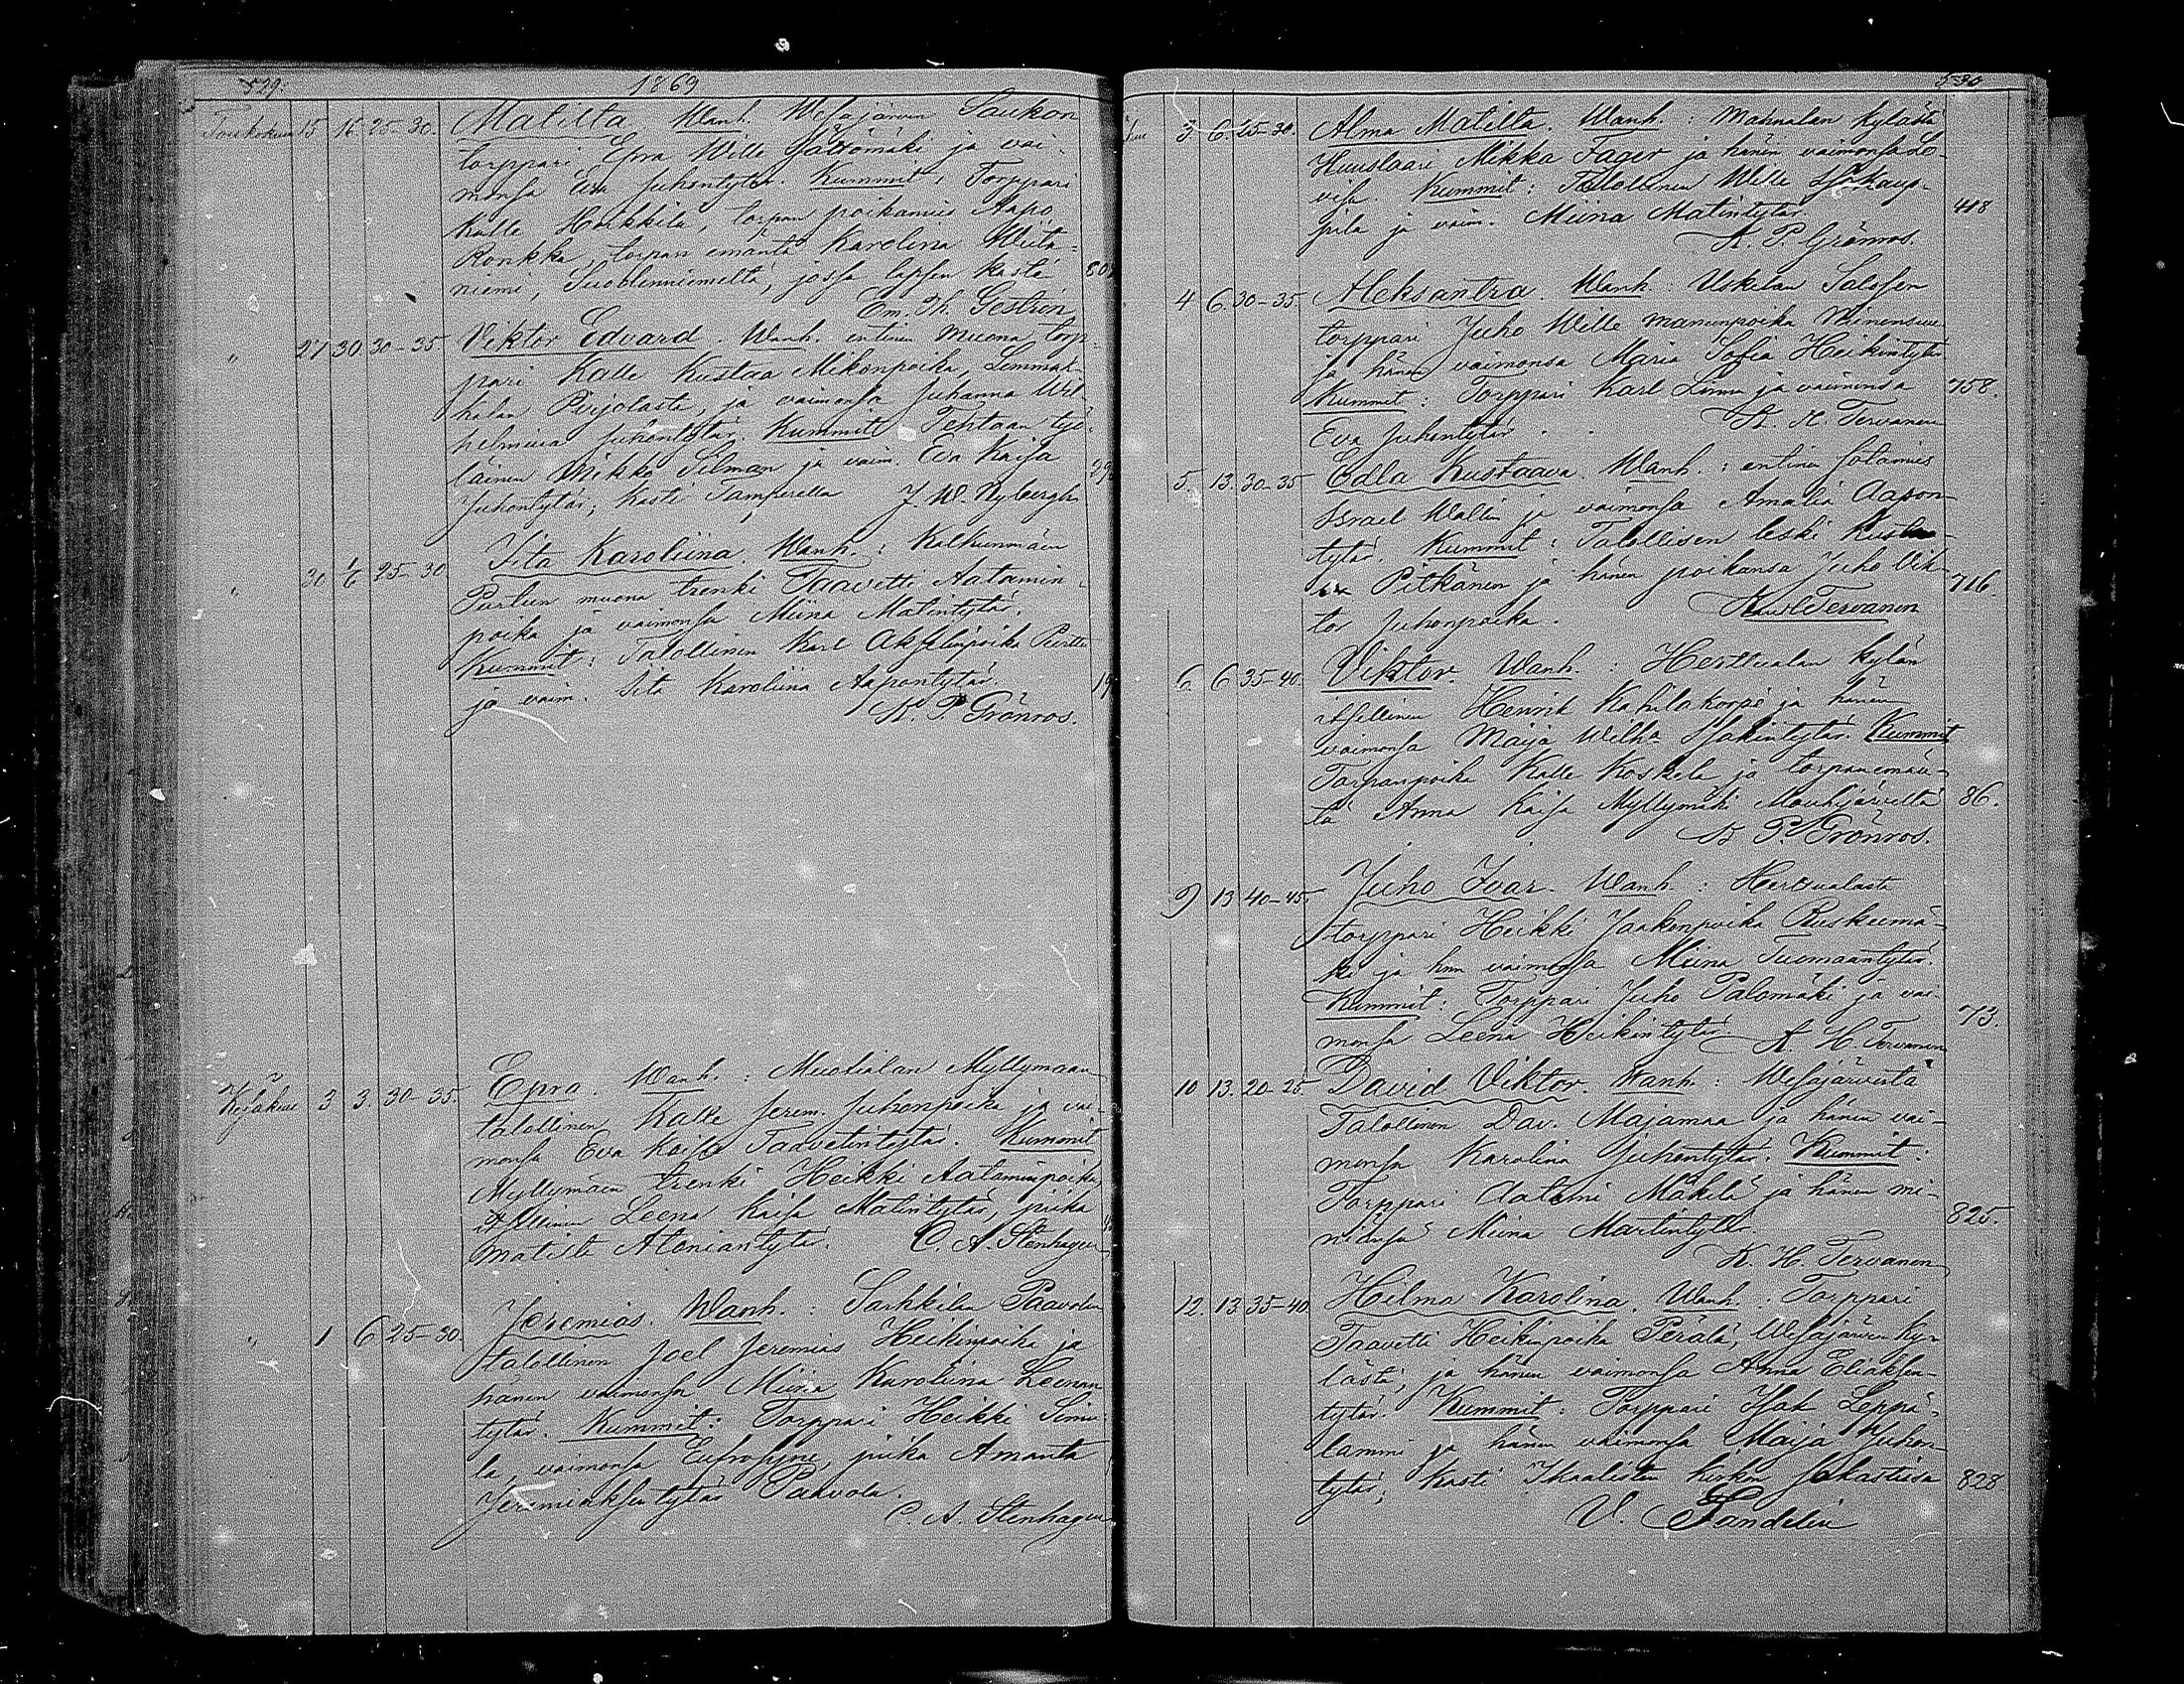 529.
1869
Toukokuu 15 16 25-30. Matilta. Wanh. Wesajärven Saukon
torppari Epra Wille Jältömäki ja vai-
monsa Eva Juhontytär. Kummit: Torppari
Kalle Heikkilä, torpan poikamies Aapo
Ronkka, torpan emäntä Karolina Wiita-
niemi, Suoblenniemeltä, jossa lapsen kaste
Em. Th. Gestrin
" 27 30 30-35 Viktor Edvard. Wanh. entinen muona torp-
pari Kalle Kustaa Mikonpoika, Lemmak-
kalan Pirjolasta, ja vaimonsa Juhanna Wil-
helmina Juhontytär. Kummit Tehtaan työ-
läinen Mikko Silman ja vaim. Eva Kaisa
Juhontytär; kasti Tamperella J. W. Nybergh
" 30 1/6 25-30 Iita Karoliina. Wanh.: Kalkunmäen
Purtun muona trenki Taavetti Aatamin-
poika ja vaimonsa Miina Matintytär.
Kummit: Talollinen Karl Akselinpoika Purttu
ja vaim. Iita Karoliina Aapontytär. 19
K. P. Grönros.
Kesäkuu 3 3. 30-35. Epra. Wanh.: Muotialan Myllymaan
talollinen Kalle Jerem. Juhonpoika ja vai-
monsa Eva Kaisa Taavetintytär. Kummit
Myllymäen trenki Heikki Aataminpoika,
itsellinen Leena Kaisa Matintytär, piika
Matilta Ataniantytär. C. A. Stenhagen
" 1 6 25-30. Jeremias. Wanh.: Sarkkilan Paavolan
talollinen Joel Jeremias Heikinpoika ja
hänen vaimonsa Miina Karoliina Leenan
tytär. Kummit: Torppari Heikki Simu-
la, vaimonsa Eufrosyne, piika Amanta
Jeremiaksentytär Paavola.
C. A. Stenhagen
530
3 6. 25-30. Alma Matilta. Wanh.: Mahnalan kylästä
Huuslaari Mikka Fager ja hänen vaimonsa Lo-
visa. Kummit: Talollinen Wille Isokaup-
pila ja vaim. Miina Matintytär. 418
K. P. Grönros.
4 6. 30-35 Aleksantra. Wanh.: Uskelan Salosen
torppari Juho Wille Manunpoika
ja hänen vaimonsa Maria Sofia Heikintytär
Kummit: Torppari Karl Linnu ja vaimonsa 758.
Eva Juhontytär. K. H. Tervanen
5. 13. 30-35 Edla Kustaava. Wanh.: entinen sotamies
Israel Wallin ja vaimonsa Amalia Aapon-
tytär. Kummit: Talollisen leski Kustaa-
va Pitkänen ja hänen poikansa Juho Vik- 716.
tor Juhonpoika. Karl Tervanen
6. 6 35-40. Viktor. Wanh.: Herttualan kylän
itsellinen Henrik Kahilakorpi ja hänen
vaimonsa Maija Wilh:a Isakintytär. Kummit
Torpanpoika Kalle Koskela ja torpanemän-
tä Anna Kaisa Myllymäki Mouhijärveltä 86.
K P. Grönros.
9 13 40-45. Juho Ivar. Wanh.: Herttualasta
torppari Heikki Jaakonpoika Ruskeemä-
ki ja hnn vaimonsa Miina Tuomaantytär.
Kummit: Torppari Juho Palomäki ja vai-
monsa Leena Heikintytär 73.
K. H. Tervanen
10 13. 20-25. David Viktor. Wanh.: Wesajärvestä
Talollinen Dav. Majamaa ja hänen vai-
monsa Karolina Juhontytär. Kummit:
Torppari Aatami Mäkelä ja hänen mi-
niänsä Miina Martintytär. 825.
K. H. Tervanen
12. 13. 35-40. Hilma Karolina. Wanh.: Torppari
Taavetti Heikinpoika Perälä, Wesajärven ky-
lästä, ja hänen vaimonsa Anna Eliaksen-
tytär. Kummit: Torppari Isak Leppä-
lammi ja hänen vaimonsa Maija Juhon-
tytär; kasti Ikaalisten kirkon sakastissa 828
V. Sandelin